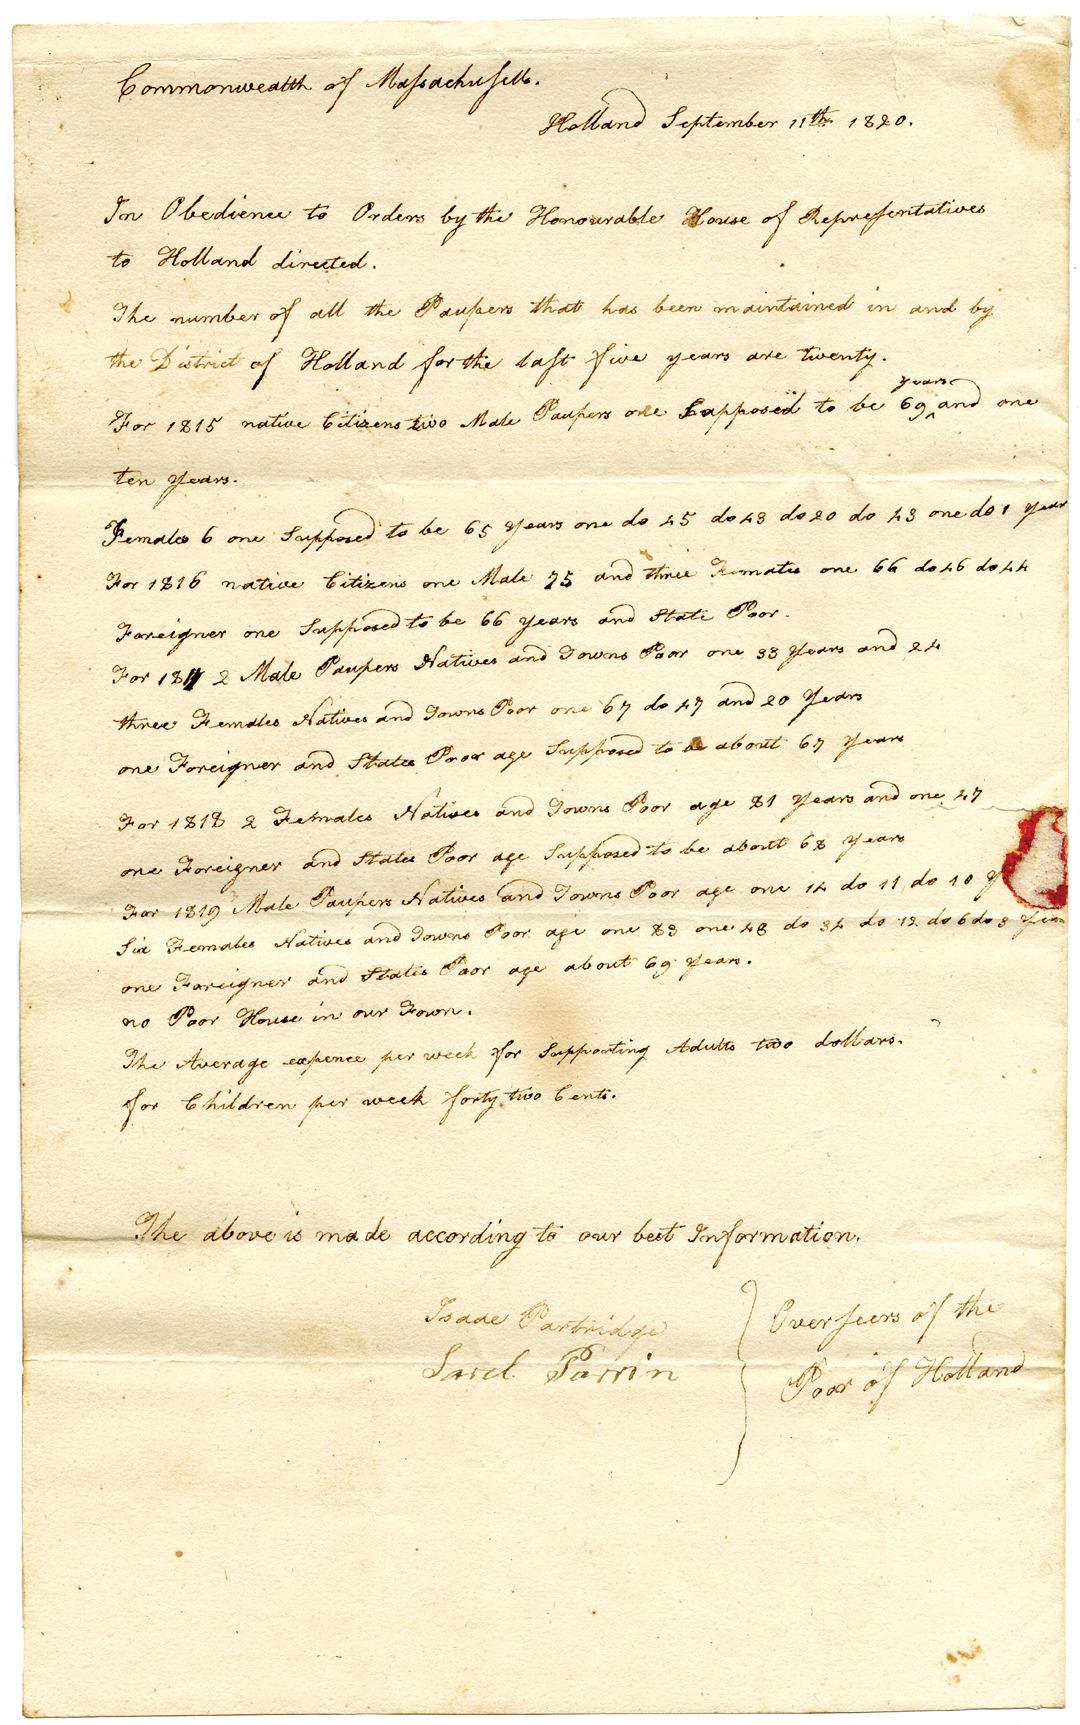 Commonwealth of Massachusetts.
Holland September 11th 1820.
In Obedience to Orders by the Honourable House of Representatives
to Holland directed.
The number of all the Paupers that has been maintained in and by
the District of Holland for the last five years are twenty.
years
For 1815 native Citizens two Male Paupers one Supposed to be 69 ^ and one
ten years.
Females 6 one Supposed to be 65 years one do 45 do 43 do 20 do 13 one do 1 year
For 1816 native Citizens one Male 75 and three Females one 66 do 46 do 44
Foreigner one Supposed to be 66 years and State Poor.
For 1817 2 Male Paupers Natives and Towns Poor one 33 years and 24
three Females Natives and Towns Poor one 67 do 47 and 20 Years
one Foreigner and States Poor age Supposed to be about 67 years
For 1818 2 Females Natives and Towns Poor age 81 Years and one 47
one Foreigner and States Poor age Supposed to be about 68 years
For 1819 Male Paupers Natives and Towns Poor age one 14 do 11 do 10 y
Six Females Natives and Towns Poor age one 83 one 48 do 34 do 12 do 6 do 3 years
one Foreigner and States Poor age about 69 years.
no Poor House in our Town.
The Average expence per week for Supporting Adults two dollars.
for Children per week forty two Cents.
The above is made according to our best Information.
Isaac Partridge
Perrin
Overseers of the
Poor of Holland